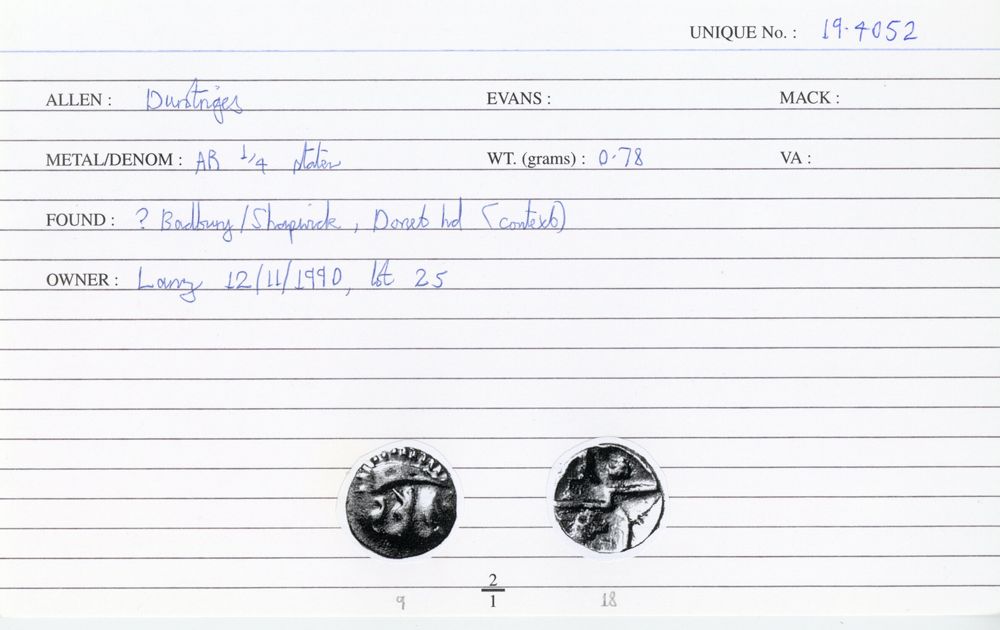 UNIQUE No. : 19.4052
ALLEN : Durotriges EVANS : MACK :
METAL/DENOM : AR 1/4 stater WT. (grams) : 0.78 VA :
FOUND : ? Badbury/Shapwick, Dorset hd (context)
OWNER : Lanz 12/11/1990, lot 25
2
1
9 18